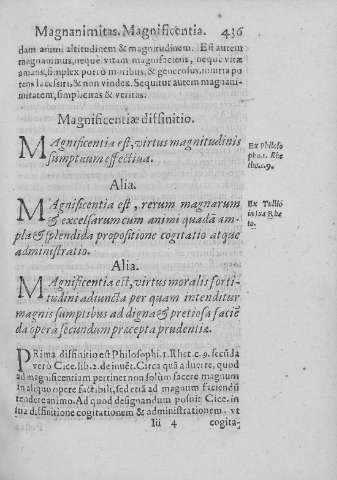 Magnanimitas. Magnificentia. 436
dam animi altitudinem & magnitudinem. Est autem
magnanimus, neque vitam magnifaciens, neque vitæ
amans, simplex porro moribus, & generosus, iniuria po
tens lacessiri, & non vindex. Sequitur autem magnani-
mitatem, simplicitas & veritas.
Magnificentiæ diffinitio.
MAgnificentia est, virtus magnitudinis
sumptuum effectiua.
Ex Philoso
pho. 1. Rhe
tho. c. 9.
Alia.
MAgnificentia est, rerum magnarum
& excelsarum cum animi quadã am-
pla & splendida propositione cogitatio atque
administratio.
Ex Tullio
in sua Rhe
to.
Alia.
MAgnificentia est, virtus moralis forti-
tudini adiuncta per quam intenditur
magnis sumptibus ad digna & pretiosa faciẽ
da opera secundum præcepta prudentiæ.
PRima diffinitio est Philosophi. 1. Rhet. c. 9. secũda
verò Cice. lib. 2. de inuẽt. Circa quã aduerte, quod
ad magnificentiam pertinet non solùm facere magnum
in aliquo opere factibili, sed etiã ad magnum faciendũ
tendere animo. Ad quod designandum posuit Cice. in
sua diffinitione cogitationem & administrationem. vt
Iii 4 cogita-